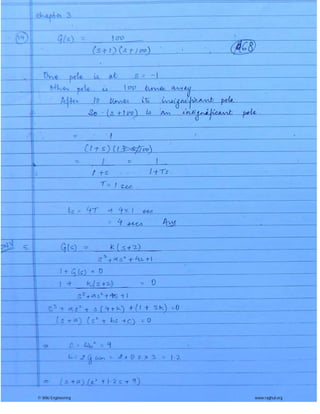 Chapter 3
G(s) = 100
(s+1)(s+100)
One pole is at s = -1
Other pole is 100 times away
After 10 times its insignificant pole
So (s+100) is an insignificant pole.
= 1
(1+s)
= 1 = 1
1+s 1+Ts
T = 1 sec
ts = 4T → 4×1 sec
= 4 secs Ans
5. G(s) = K(s+2)
s³+as²+4s+1
1 + G(s) = 0
1 + K(s+2) = 0
s³+as²+4s+1
s³ + as² + s(4+K) + (1 + 2K) = 0
(s+a)(s²+bs+c) = 0
⇒ c = ωn² = 9
= 1.2
⇒ (s+a)(s²+1.2s+9)
© Wiki Engineering www.raghul.org